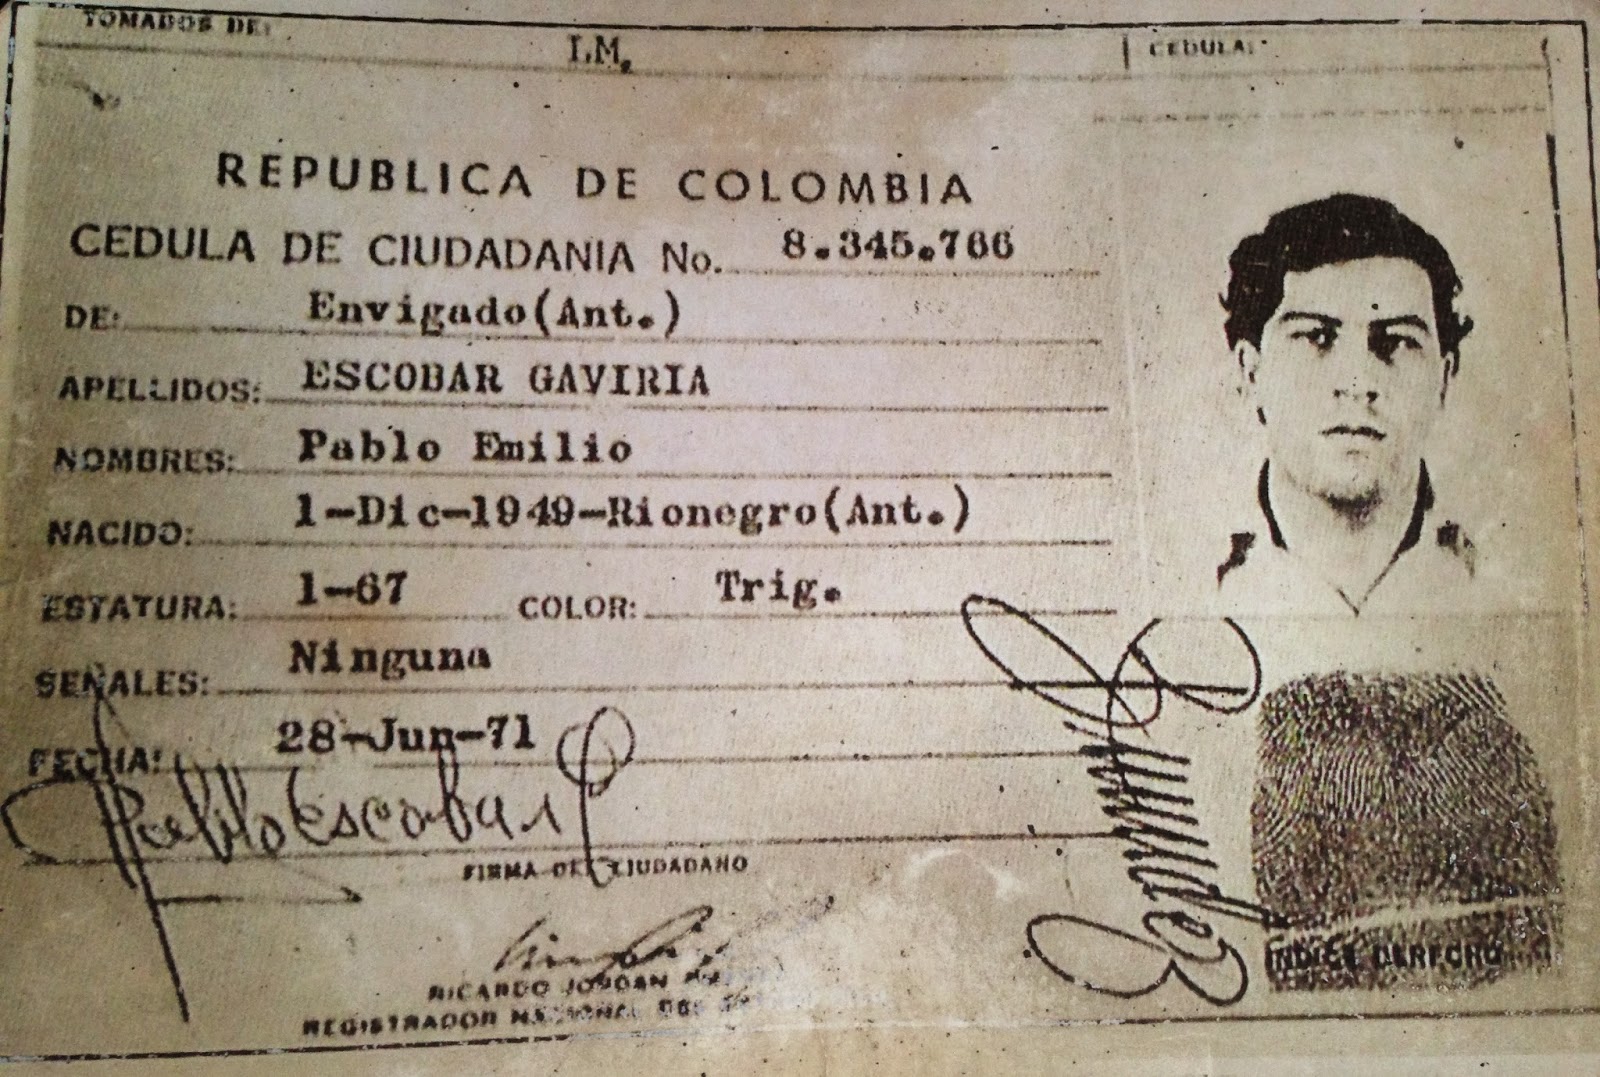 TOMADOS DE: I.M. CEDULA:
REPUBLICA DE COLOMBIA
CEDULA DE CIUDADANIA No. 8.345.766
DE: Envigado(Ant.)
APELLIDOS: ESCOBAR GAVIRIA
NOMBRES: Pablo Emilio
NACIDO: 1-Dic-1949-Rionegro(Ant.)
ESTATURA: 1-67 COLOR: Trig.
SEÑALES: Ninguna
FECHA: 28-Jun-71
Pablo Escobar G
FIRMA DEL CIUDADANO
RICARDO JORDAN
REGISTRADOR NACIONAL DEL
INDICE DERECHO